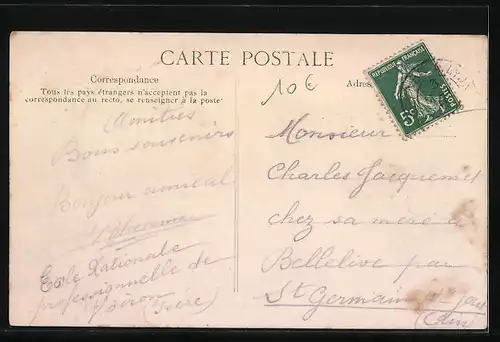 CARTE POSTALE
Correspondance
Tous les pays étrangers n'acceptent pas la
correspondance au recto, se renseigner à la poste
Amitiés
Bons souvenirs
Bonjour amical
Ecole Nationale
professionnelle de
Voiron (Isère)
10€
Adres
REPUBLIQUE FRANÇAISE
POSTES
5c
Monsieur
Charles Jacquemet
chez sa mère à
Bellelive par
St Germain
(Ain)